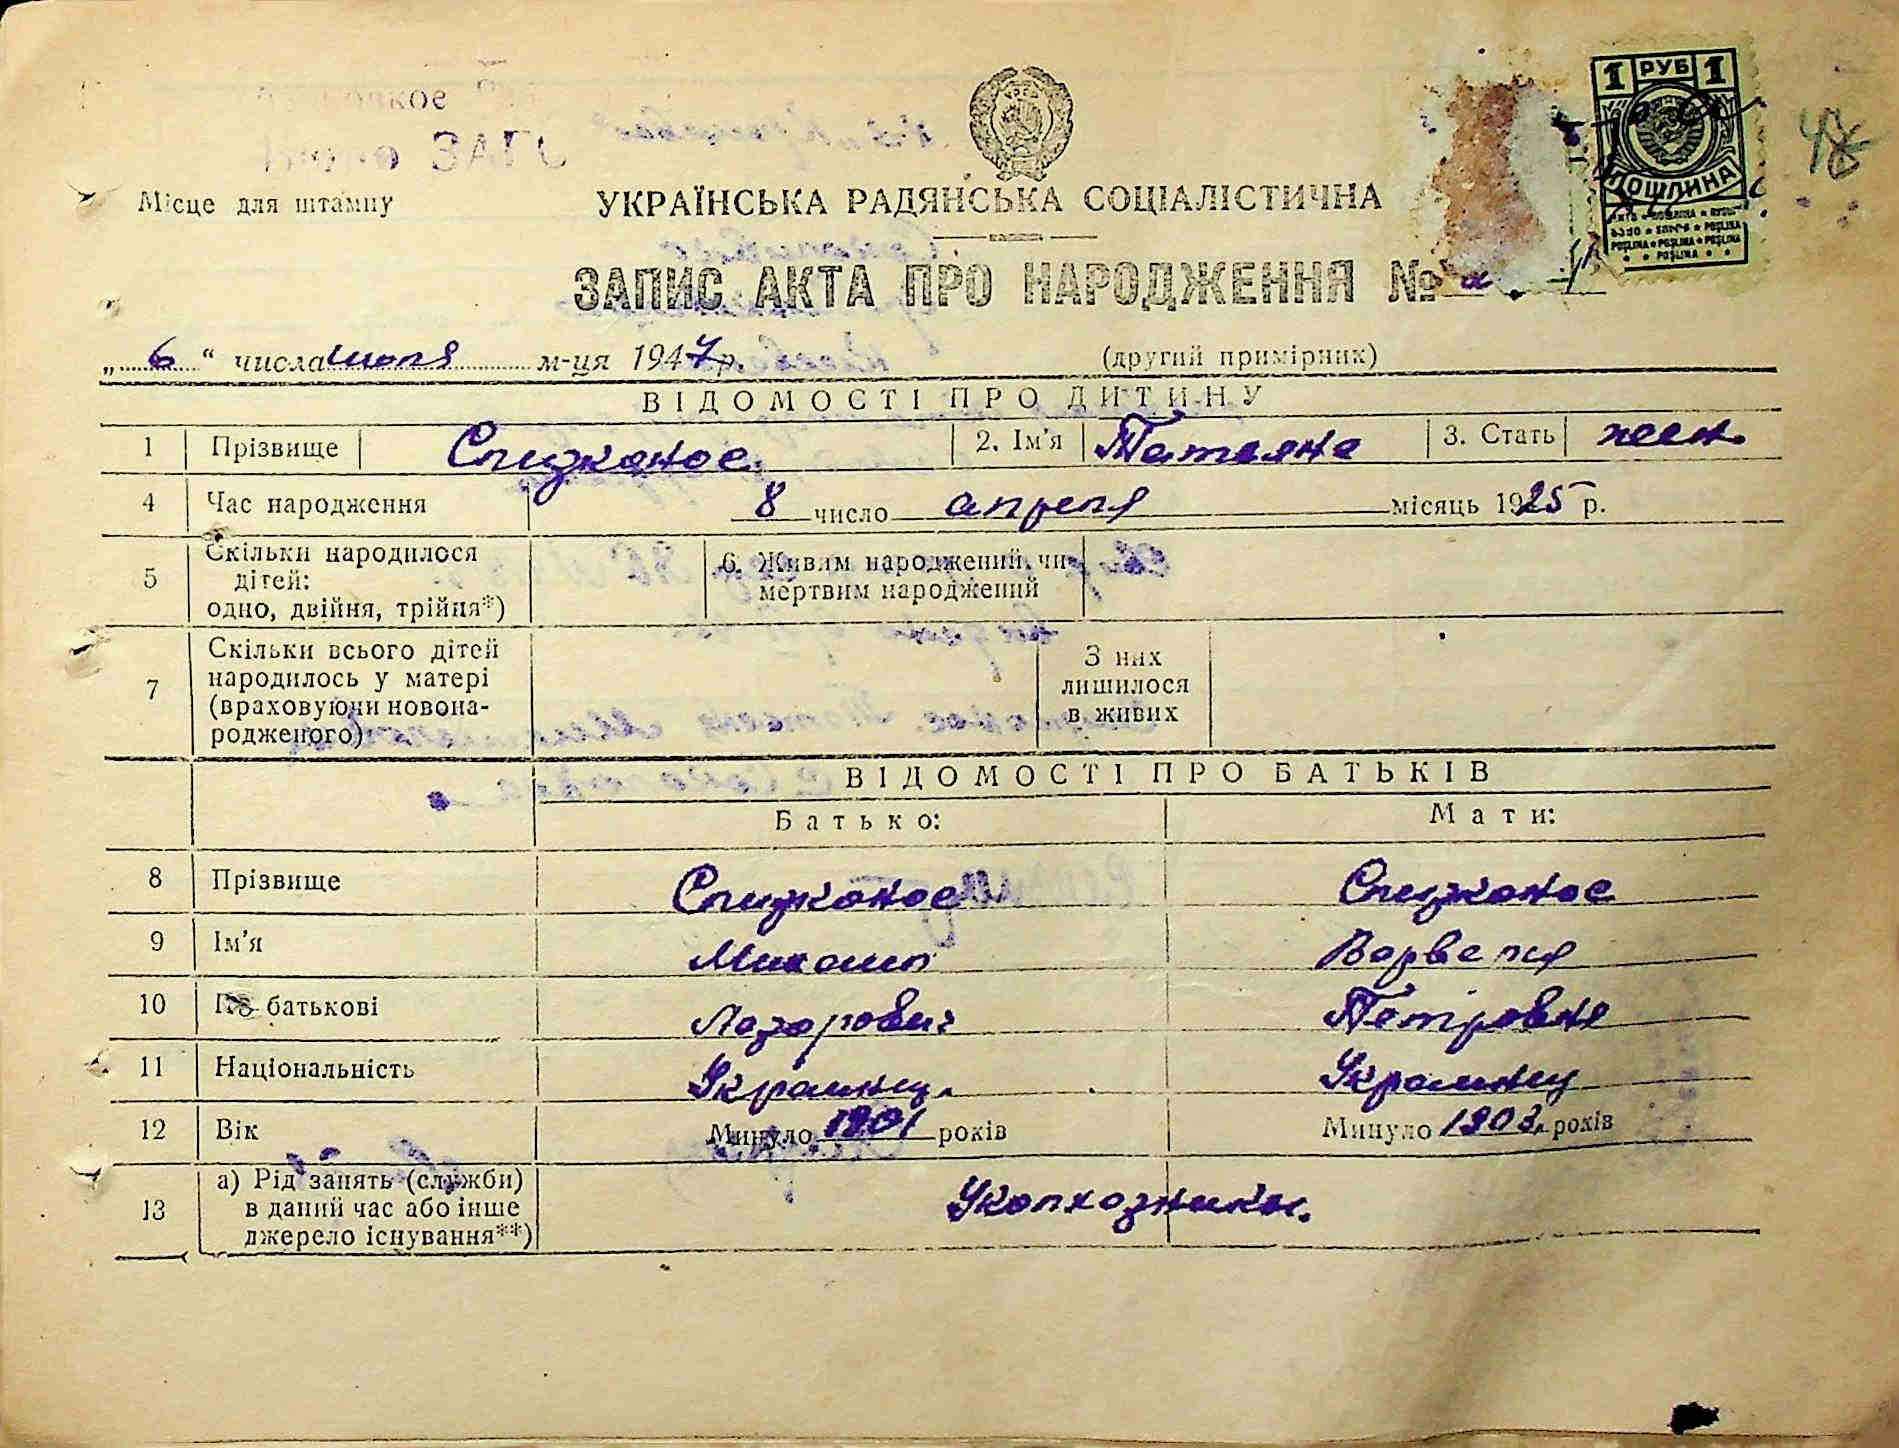 ЗАГС
Місце для штампу
УКРАЇНСЬКА РАДЯНСЬКА СОЦІАЛІСТИЧНА
1 РУБ 1
ПОШЛИНА
48
ЗАПИС АКТА ПРО НАРОДЖЕННЯ №
„ 6 “ числа июля м-ця 1947 р.
(другий примірник)
ВІДОМОСТІ ПРО ДИТИНУ
1 Прізвище Слизконос. 2. Ім'я Татьяна 3. Стать жен.
4 Час народження 8 число апреля місяць 1925 р.
5 Скільки народилося дітей: одно, двійня, трійня*) 6. Живим народжений, чи мертвим народжений
7 Скільки всього дітей народилось у матері (враховуючи новонародженого) З них лишилося в живих
ВІДОМОСТІ ПРО БАТЬКІВ
Батько: Мати:
8 Прізвище Слизконос Слизконос
9 Ім'я Михаил Варвара
10 По батькові Лазорович Петровна
11 Національність Украинц. Украинц
12 Вік Минуло 1901 років Минуло 1903. років
13 а) Рід занять (служби) в даний час або інше джерело існування**) Уколхозники.